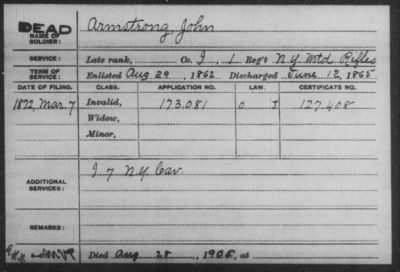 DEAD
NAME OF SOLDIER: Armstrong, John
SERVICE: Late rank, Co. I, 1 Reg't N.Y. Mtd Rifles
TERM OF SERVICE: Enlisted Aug 29, 1862 Discharged June 12, 1865
DATE OF FILING. CLASS. APPLICATION NO. LAW. CERTIFICATE NO.
1872, Mar. 7 Invalid, 173.081 O I 127.408
Widow,
Minor,
ADDITIONAL SERVICES: I 7 N.Y. Cav.
REMARKS:
Died Aug 28, 1905, at